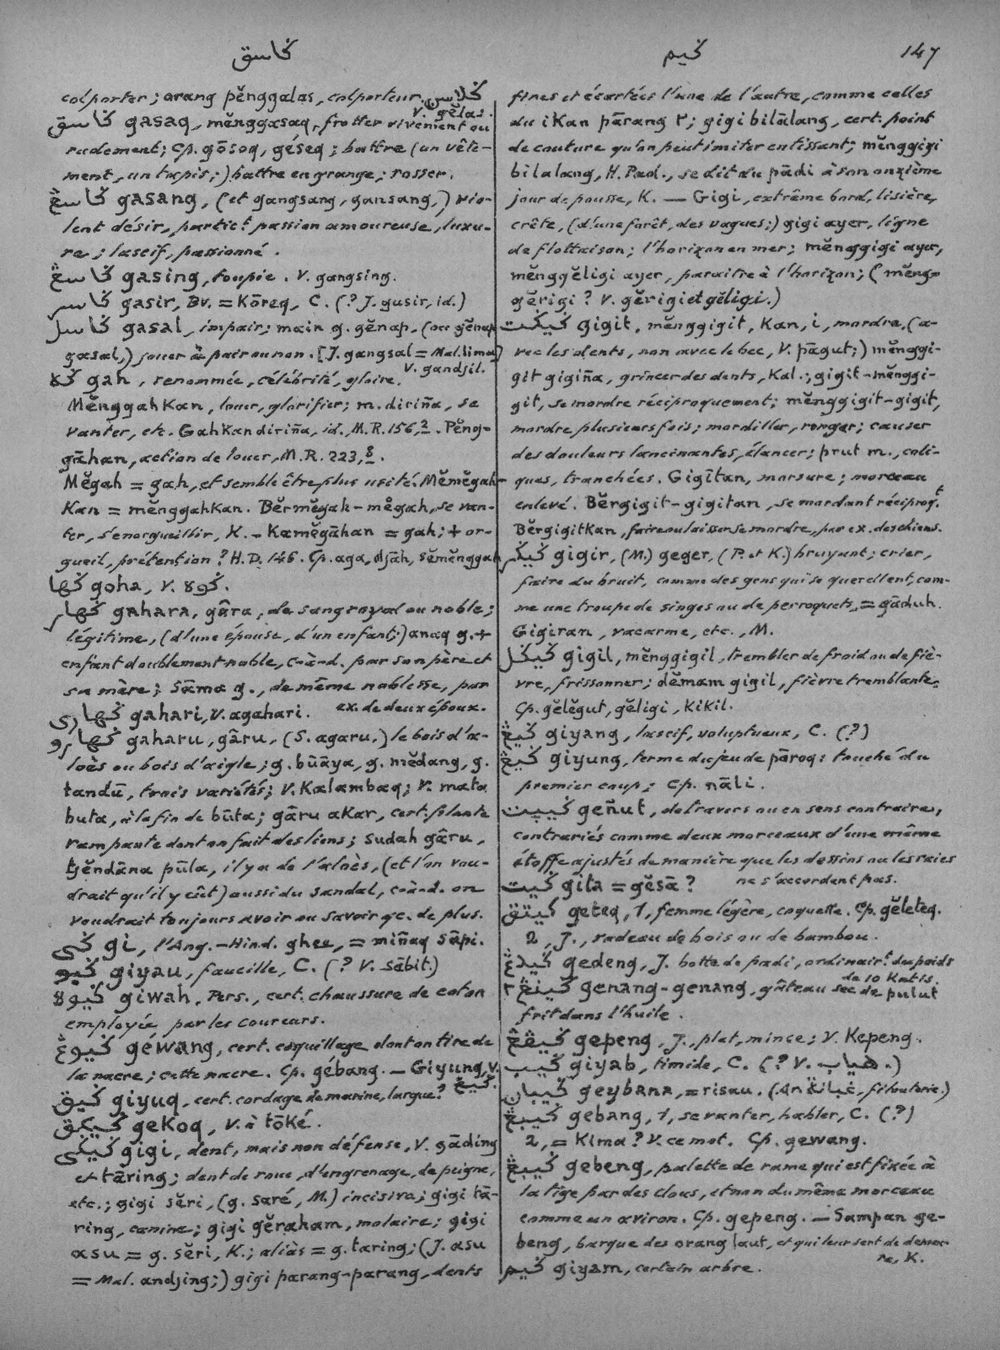 ݢاسق
ݢيم
147
colporter; orang pĕnggalas, colporteur. ݢلاس
V. gĕlas.
ݢاسق gasaq, mĕnggasaq, frotter vivement ou
rudement; Cp. gōsoq, géseq; battre (un vête-
ment, un tapis;) battre en grange; rosser.
ݢاسڠ gasang, (et gangsang, gansang,) vio-
lent désir, partic.t passion amoureuse, luxu-
re; lascif, passionné.
ݢاسڠ gasing, toupie. V. gangsing.
ݢاسر gasir, Bv. = Kōreq, C. (? J. gusir, id.)
ݢاسل gasal, impair; main g. gĕnap, (ou gĕnap
gasal,) jouer à pair ou non. [J. gangsal = Mal. lima]
V. gandjil.
ݢه gah, renommée, célébrité, gloire.
MĕnggahKan, louer, glorifier; m. diriña, se
vanter, etc. GahKan diriña, id., M.R. 156,2. Pĕng-
gāhan, action de louer, M.R. 223,8.
Mĕgah = gah, et semble être plus usité. Mĕmĕgah-
Kan = mĕnggahKan. Bĕrmĕgah-mĕgah, se van-
ter, s'enorgueillir, K. - Kamĕgāhan = gah; + or-
gueil, prétention? H.D. 146. Cp. aga, djāh, sĕmĕnggah
ݢها goha, V. ݢوه.
ݢهار gahara, gâra, de sang royal ou noble;
légitime, (d'une épouse, d'un enfant;) anaq g. +
enfant doublement noble, c-à-d. par son père et
sa mère; sāma g., de même noblesse, par
ex. de deux époux.
ݢهاري gahari, V. agahari.
ݢهارو gaharu, gâru, (S. agaru,) le bois d'a-
loès ou bois d'aigle; g. būāya, g. mĕdang, g.
tandū, trois variétés; V. Kalambaq; V. mata
buta, à la fin de būta; gâru aKar, cert. plante
rampante dont on fait des liens; sudah gâru,
tjĕndāna pūla, il y a de l'aloès, (et l'on vou-
drait qu'il y eût) aussi du sandal, c-à-d. on
voudrait toujours avoir ou savoir qc. de plus.
ݢي gi, l'Ang.-Hind. ghee, = miñaq sāpi.
ݢيو giyau, faucille, C. (? V. sābit.)
ݢيوه giwah, Pers., cert. chaussure de coton
employée par les coureurs.
ݢيوڠ géwang, cert. coquillage dont on tire de
la nacre; cette nacre. Cp. gébang. - Giyung, V.
ݢيڠ.
ݢيق giyuq, cert. cordage de marine, largue?
ݢيكق geKoq, V. à tōKé.
ݢيݢي gigi, dent, mais non défense, V. gāding
et tāring; dent de roue, d'engrenage, de peigne,
etc.; gigi sĕri, (g. saré, M.) incisive; gigi tā-
ring, canine; gigi gĕraham, molaire; gigi
asu = g. sĕri, K.; aliàs = g. taring; (J. asu
= Mal. andjing;) gigi parang-parang, dents
fines et écartées l'une de l'autre, comme celles
du iKan pārang ٢; gigi bilālang, cert. point
de couture qu'on peut imiter en tissant; mĕnggigi
bilalang, H. Pad., se dit du pādi à son onzième
jour de pousse, K. — Gigi, extrême bord, lisière,
crête, (d'une forêt, des vagues;) gigi ayer, ligne
de flottaison; l'horizon en mer; mĕnggigi ayer,
mĕnggĕligi ayer, paraître à l'horizon; (mĕng-
gĕrigi? V. gĕrigi et gĕligi.)
ݢيݢت gigit, mĕnggigit, Kan, i, mordre, (a-
vec les dents, non avec le bec, V. pāgut;) mĕnggi-
git gigiña, grincer des dents, Kal.; gigit-mĕnggi-
git, se mordre réciproquement; mĕnggigit-gigit,
mordre plusieurs fois; mordiller, ronger; causer
des douleurs lancinantes, élancer; prut m., coli-
ques, tranchées. Gigītan, morsure; morceau
enlevé. Bĕrgigit-gigitan, se mordant réciproq.t
BĕrgigitKan, faire ou laisser se mordre, par ex. des chiens.
ݢيݢر gigir, (M.) geger, (P. et K.) bruyant; crier,
faire du bruit, comme des gens qui se querellent, com-
me une troupe de singes ou de perroquets, = gāduh.
Gigiran, vacarme, etc., M.
ݢيݢل gigil, mĕnggigil, trembler de froid ou de fiè-
vre, frissonner; dĕmam gigil, fièvre tremblante.
Cp. gĕlĕgut, gĕligi, KiKil.
ݢيڠ giyang, lascif, voluptueux, C. (?)
ݢيڠ giyung, terme du jeu de pāroq: touché du
premier coup; Cp. nāli.
ݢيڽت geñut, de travers ou en sens contraire,
contrariés comme deux morceaux d'une même
étoffe ajustés de manière que les dessins ou les raies
ne s'accordent pas.
ݢيت gita = gĕsā?
ݢيتق geteq, 1, femme légère, coquette. Cp. gĕleteq.
2, J., radeau de bois ou de bambou.
ݢيدڠ gedeng, J. botte de padi, ordinair.t du poids
de 10 Katis.
ݢينڠ ٢ genang-genang, gâteau sec de pulut
frit dans l'huile.
ݢيڤڠ gepeng, J., plat, mince; V. Kepeng.
ݢيب giyab, timide, C. (? V. هياب.)
ݢيبان geybana, = risau. (Ar. غبانة, filouterie.)
ݢيبڠ gebang, 1, se vanter, hâbler, C. (?)
2, = Kima? V. ce mot. Cp. gewang.
ݢيبڠ gebeng, palette de rame qui est fixée à
la tige par des clous, et non du même morceau
comme un aviron. Cp. gepeng. — Sampan ge-
beng, barque des orang laut, et qui leur sert de demeu-
re, K.
ݢيم giyam, certain arbre.